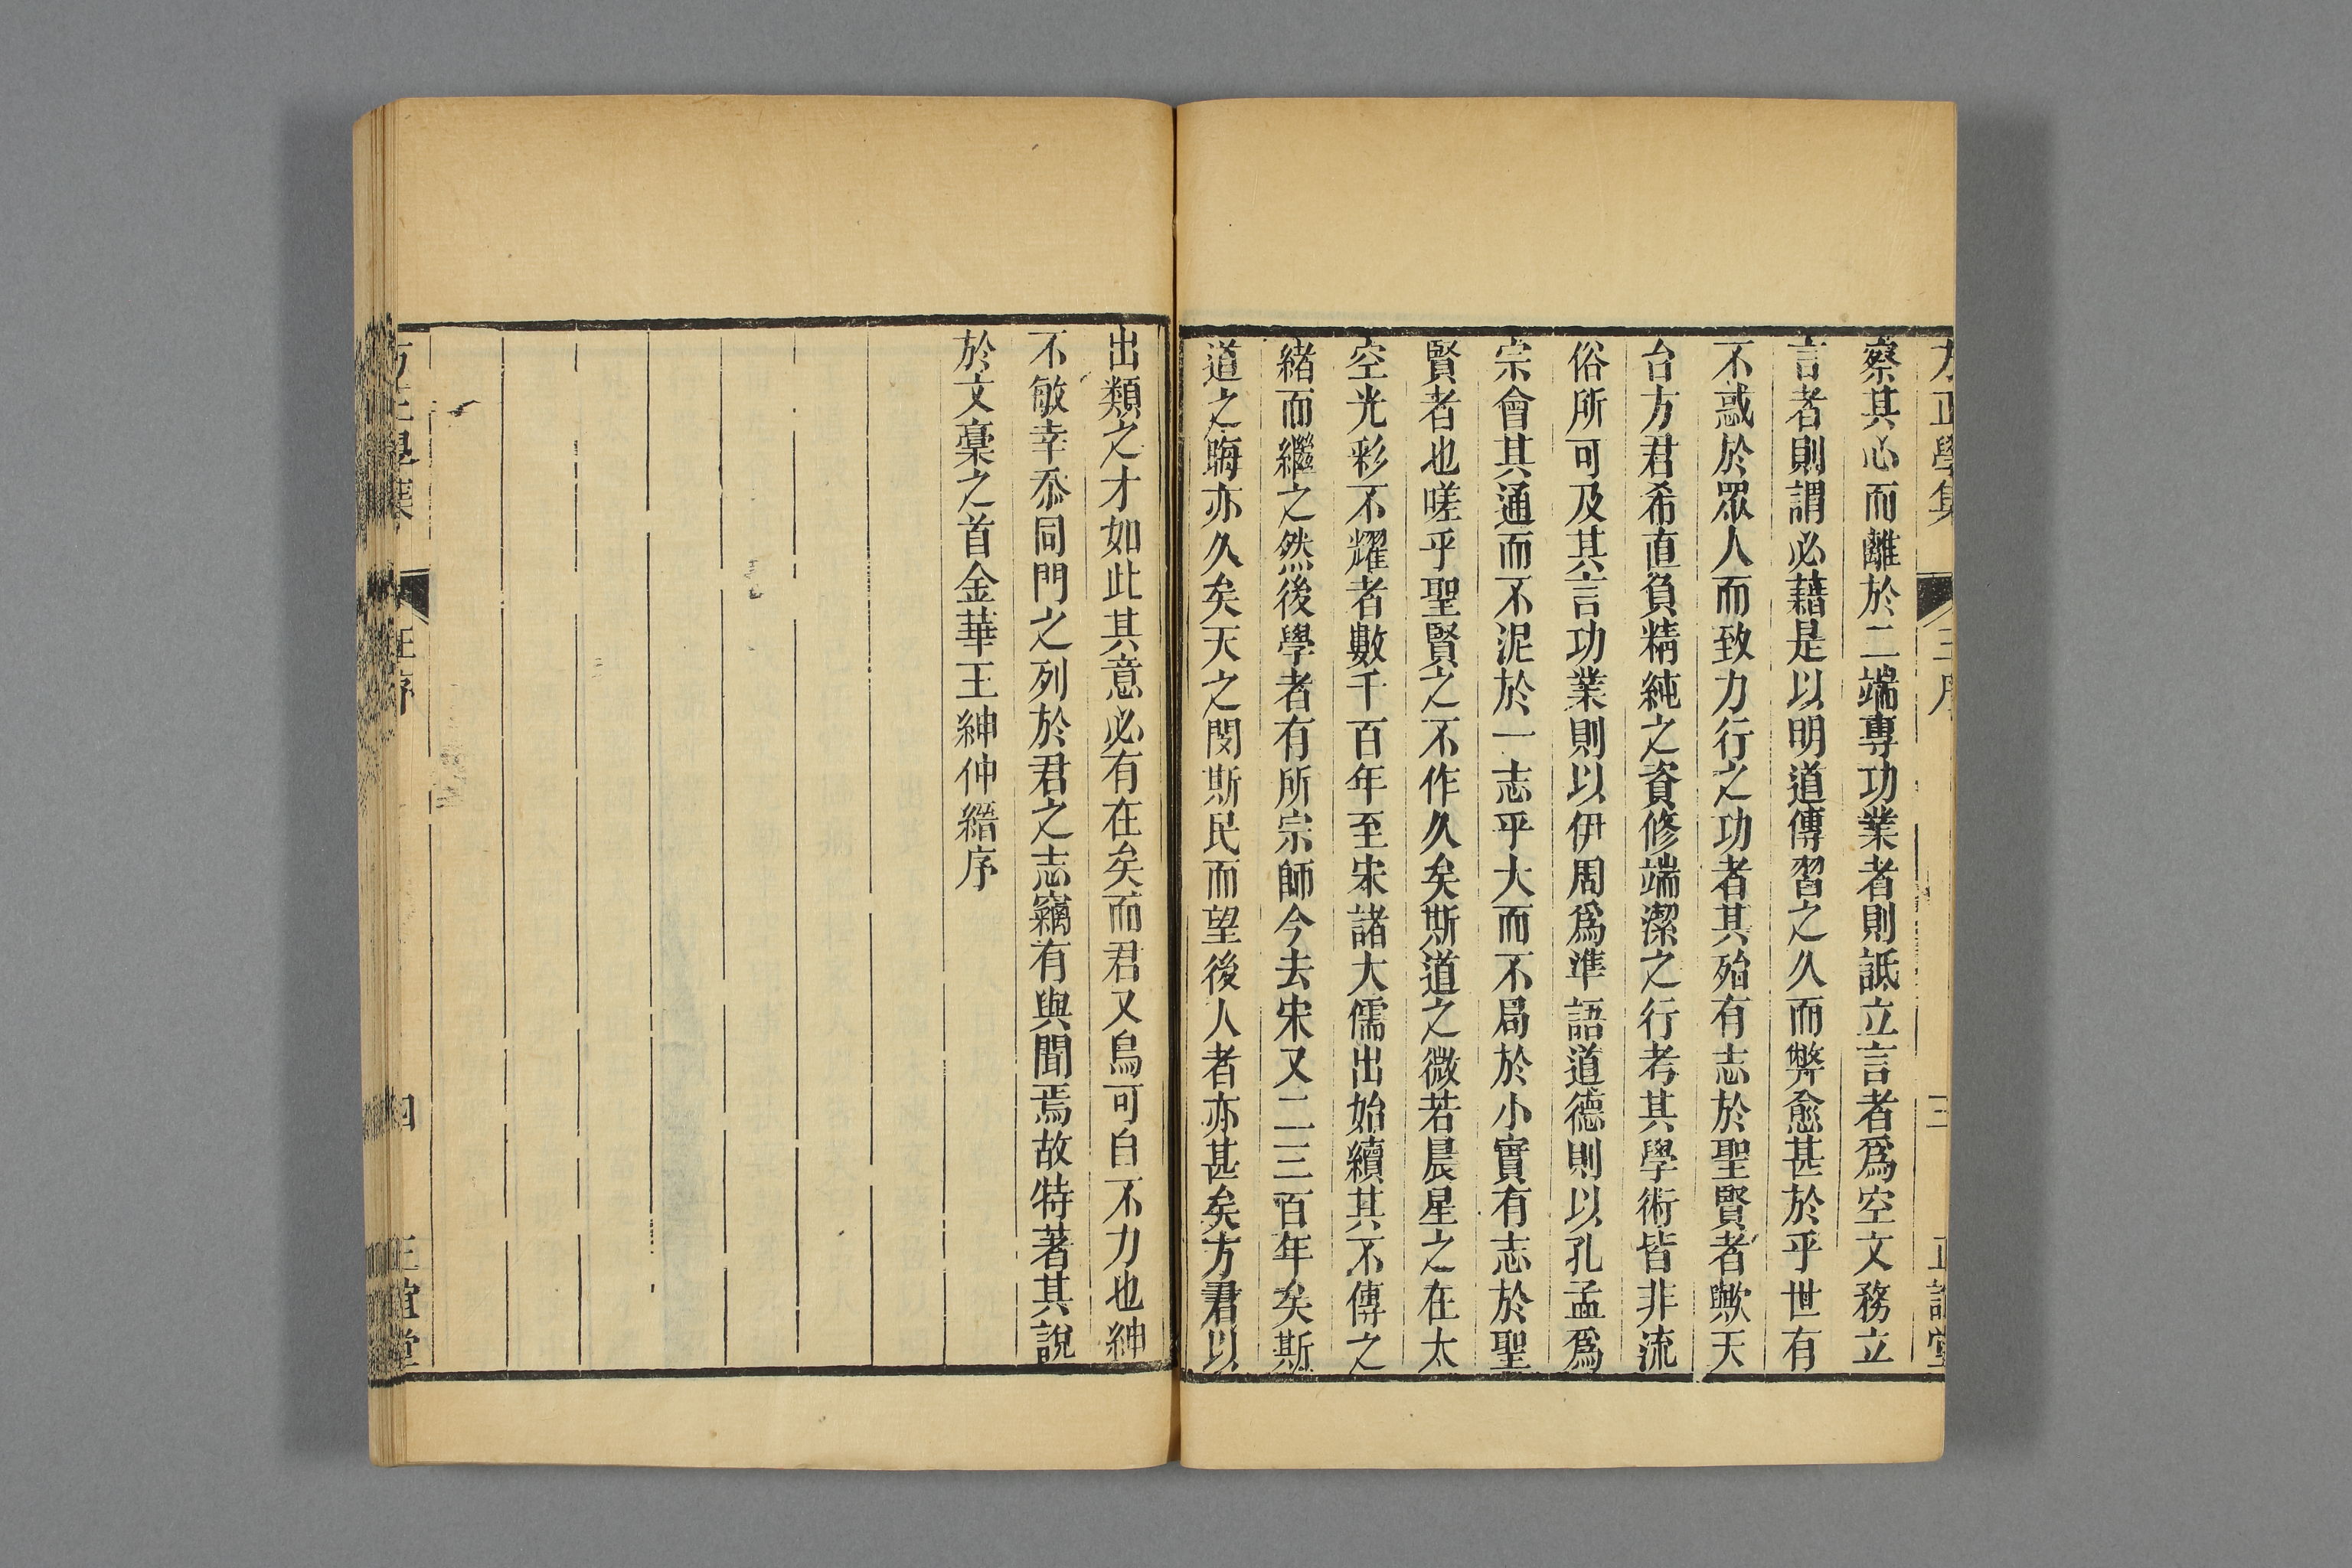 察其必而離於二端專功業者則詆立言者爲空文務立
言者則謂必藉是以明道傳習之久而弊愈甚於乎世有
不惑於眾人而致力行之功者其殆有志於聖賢者歟天
台方君希直負精純之資修端潔之行考其學術皆非流
俗所可及其言功業則以伊周爲準語道德則以孔孟爲
宗會其通而不泥於一志乎大而不局於小實有志於聖
賢者也嗟乎聖賢之不作久矣斯道之微若晨星之在太
空光彩不耀者數千百年至宋諸大儒出始續其不傳之
緒而繼之然後學者有所宗師今去宋又二三百年矣斯
道之晦亦久矣天之閔斯民而望後人者亦甚矣方君以
出類之才如此其意必有在矣而君又烏可自不力也紳
不敏幸忝同門之列於君之志竊有與聞焉故特著其說
於文稾之首金華王紳仲縉序